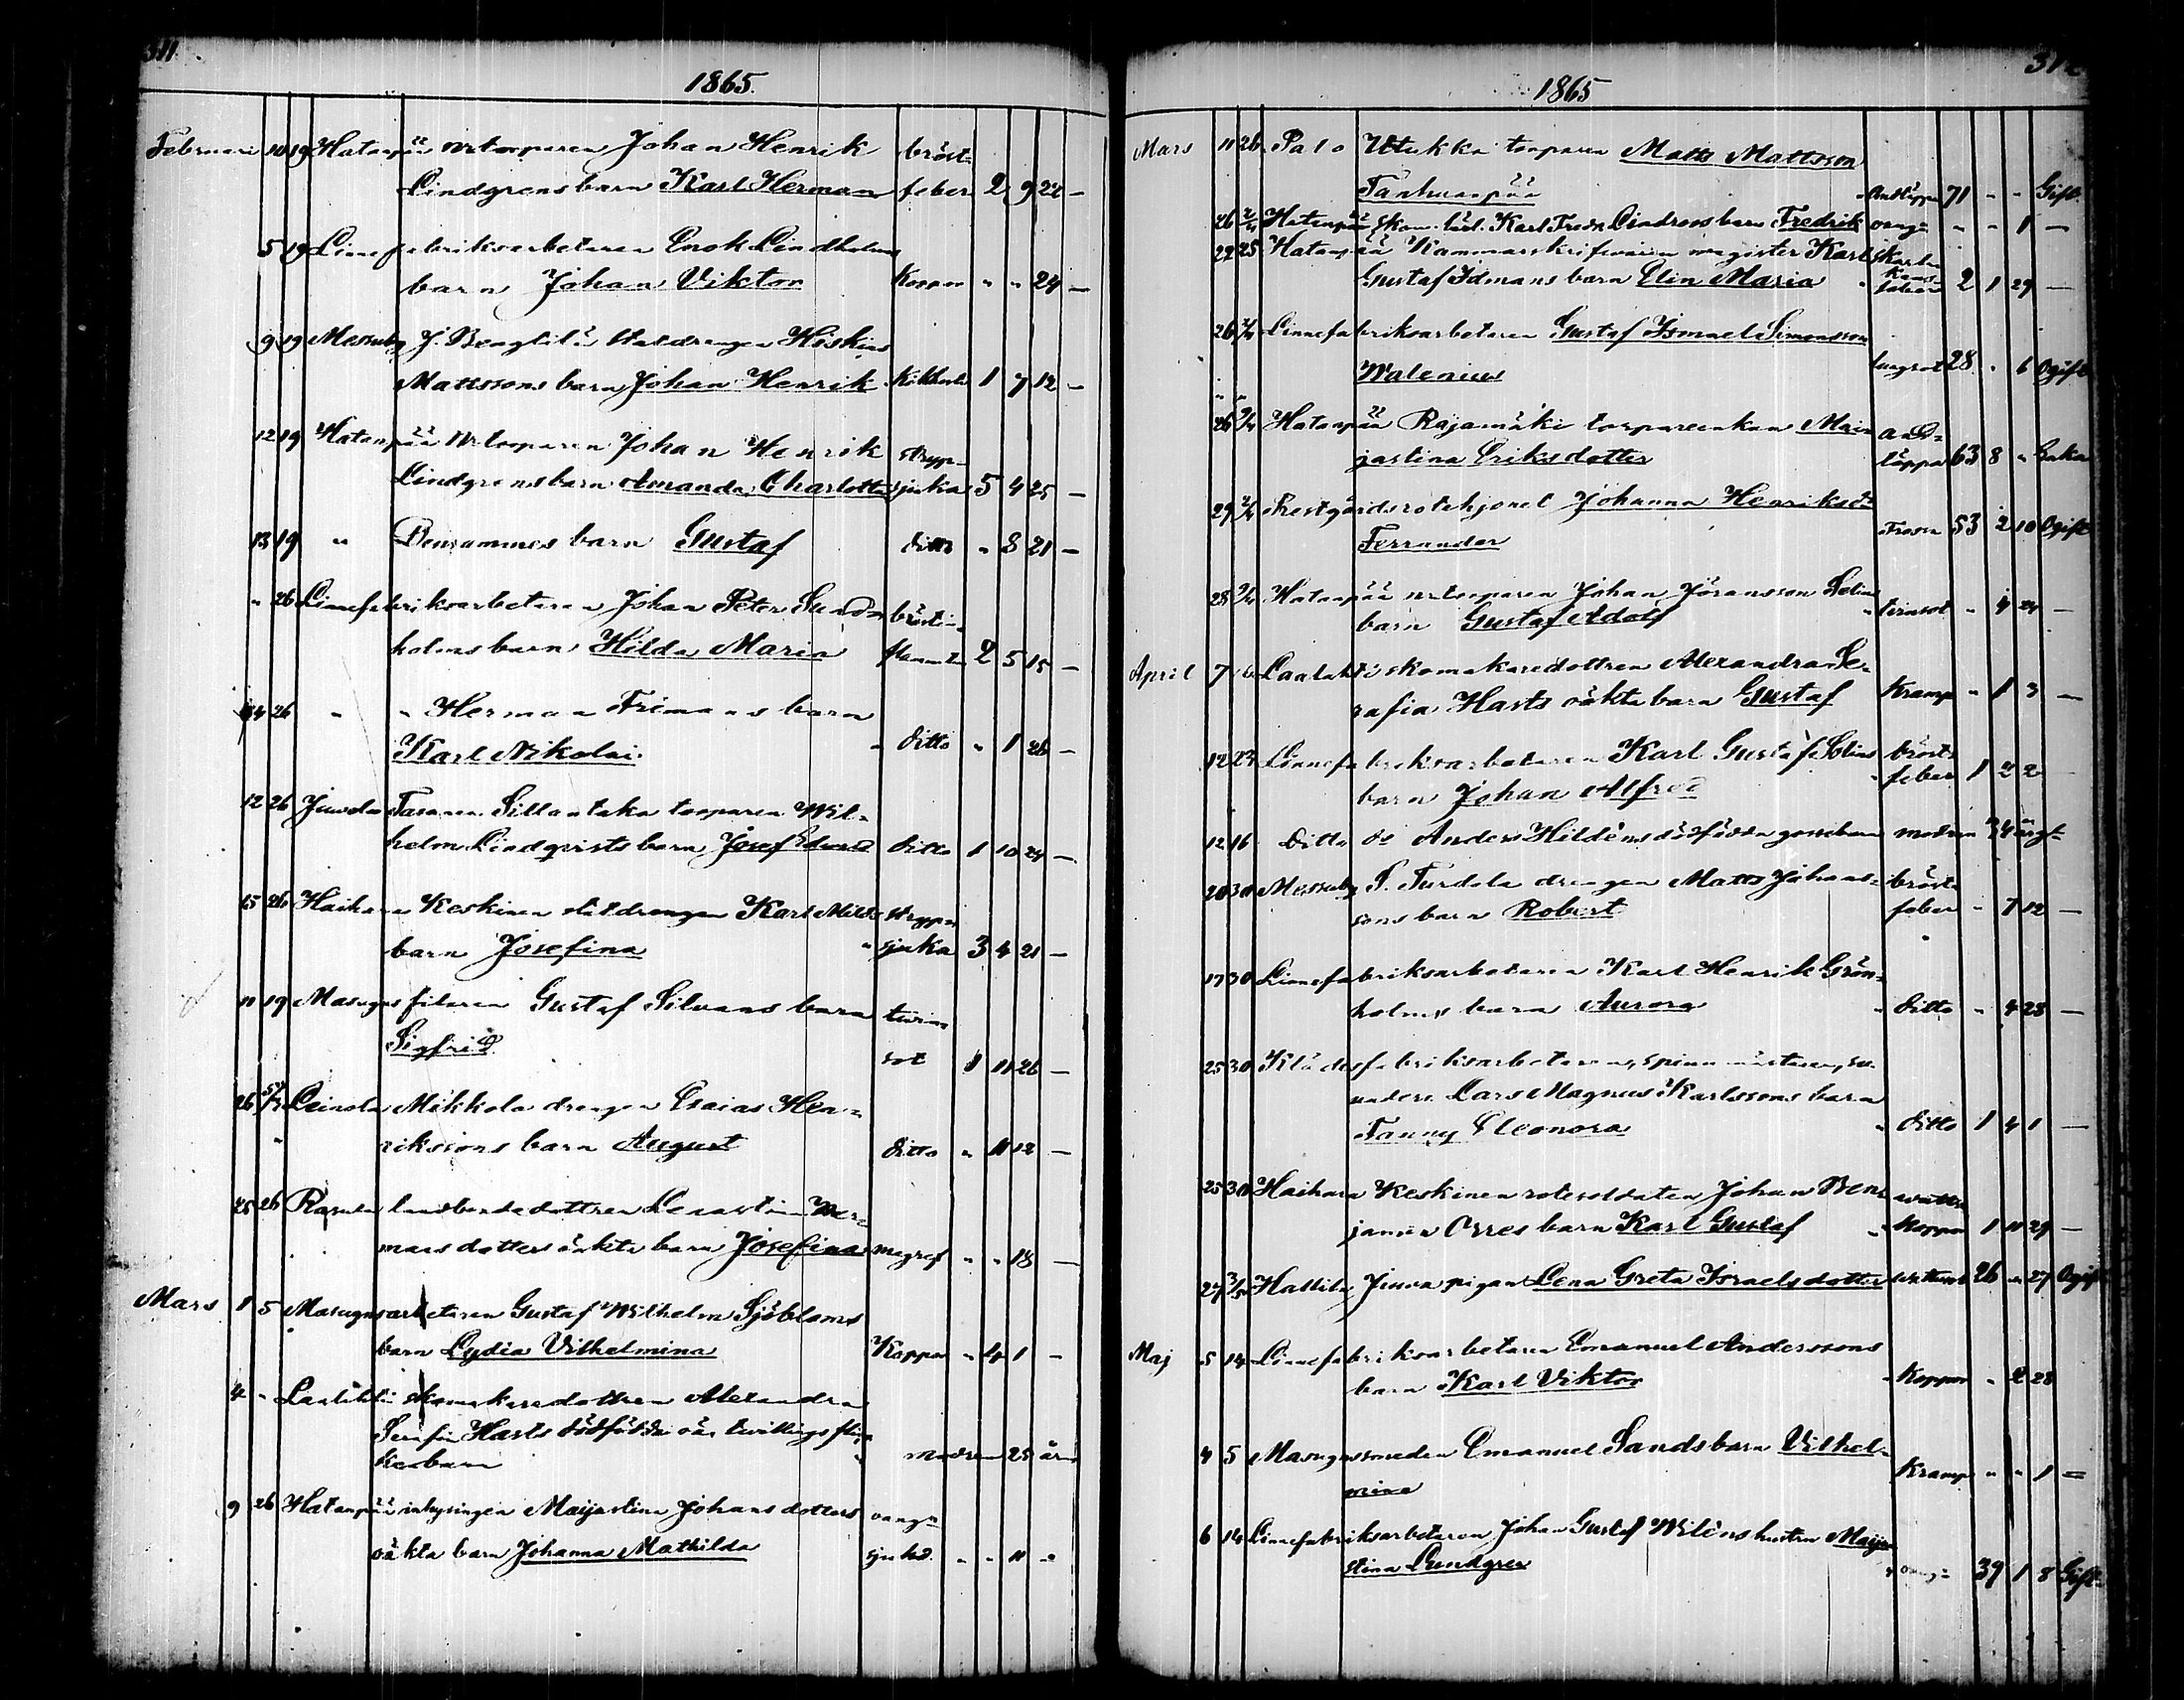 311.
1865.
Februari 10 19 Hatanpää nrtorparen Johan Henrik bröst-
Lindgrens barn Karl Herman feber 2 9 22 —
5 19 Linnefabriksarbetaren Enok Lindholms
barn Johan Viktor Koppor " " 24 —
9 19 Messuby J. Bengtilä statdrengen Hiskias
Mattssons barn Johan Henrik Kikhosta 1 7 12 —
12 19 Hatanpää nrtorparen Johan Henrik stryp-
Lindgrens barn Amanda Charlotta sjuka 5 4 25 —
13 19 " Densammes barn Gustaf ditto " 8 21 —
" 26 Linnefabriksarbetaren Johan Peter Sund- bröstin-
holms barn Hilda Maria flammat. 2 5 15 —
14 26 " " Herman Frimans barn
Karl Nikolai. " ditto " 1 26 —
12 26 Juvela Tasanen Sillantaka torparen Wil-
helm Lindqvists barn Josef Edvard ditto 1 10 24 —
15 26 Haihara Keskinen statdrengen Karl Milds stryp-
barn Josefina " sjuka 3 4 21 —
11 19 Masugnsfilaren Gustaf Silvans barn tvin-
Sigfrid sot 1 11 26 —
26 5/3 Leinola Mikkola drengen Esaias Hen-
rikssons barn August ditto " 11 12 —
25 26 landbondedottren
dotters oäkta barn Josefina " " 18 —
Mars 1 5 Masugnsarbetaren Gustaf Wilhelm Sjöbloms
barn Lydia Vilhelmina Koppor " 4 1 —
4 " skomakaredottren Alexandra
Serafia Harts dödfödda oä. tvillings flic-
kebarn " modren 25 år
9 26 Hatanpää inhysingen Maijastina Johansdotters
oäkta barn Johanna Mathilda sjukd. " " 11 "
312
1865
Mars 11 26 Palo Utukka torparen Matts Mattsson
Tanhuanpää " Andtäppa 71 " " Gift.
26 2/4 Hatanpää Karl Fredr. Lindroos barn Fredrik " " 1 —
22 25 Hatanpää Kammarskrifvaren magister Karl Skarla-
Gustaf Idmans barn Elin Maria " kans-
feber 2 1 29 —
26 2/4 Linnefabriksarbetaren Gustaf Ismael Simonsson
Walenius lungsot 28 " 6 Ogift
26 9/4 Hatanpää Rajamäki torpareenkan Maia and-
jastina Eriksdotter täppa 63 8 " Enka
29 2/4 Prestgårdsrotehjonet Johanna Henriksdr
Ferrander Frossa 53 2 10 Ogift
28 9/4 Hatanpää nrtorparen Johan Jöransson Selins
barn Gustaf Adolf " tvinsot " 4 24 —
April 7 skomakaredottren Alexandra Se-
rafia Harts oäkta barn Gustaf Kramp " 1 3 —
12 23 Linnefabriksarbetaren Karl Gustaf Solins bröst-
barn Johan Alfred " feber 1 2 2 —
12 16 Ditto do Anders Hildéns dödfödda gossebarn modren 34 år gl.
20 30 Messuby S. Turdola drengen Matts Johans- bröst-
sons barn Robert feber " 7 12 —
17 30 Linnefabriksarbetaren Karl Henrik Grön-
holms barn Aurora " ditto " 4 23 —
25 30 Klädesfabriksarbetaren,
Lars Magnus Karlssons barn
Fanny Eleonora " ditto 1 4 1 —
25 30 Haihara Keskinen rotesoldaten Johan Ben- vatten
jamin Orres barn Karl Gustaf " Koppor 1 11 29 —
27 3/5 Hallila Juva pigan Lena Greta Israelsdotter 26 " 27 Ogift
Maj 5 14 Linnefabriksarbetaren Emanuel Anderssons
barn Karl Viktor " Koppor " 2 28
4 5 Masugnssmeden Emanuel Sands barn Vilhel-
mina Kramp " " 1 —
6 14 Linnefabriksarbetaren Johan Gustaf Wiléns hustru Maija
stina Lundgren " 39 1 8 Gift